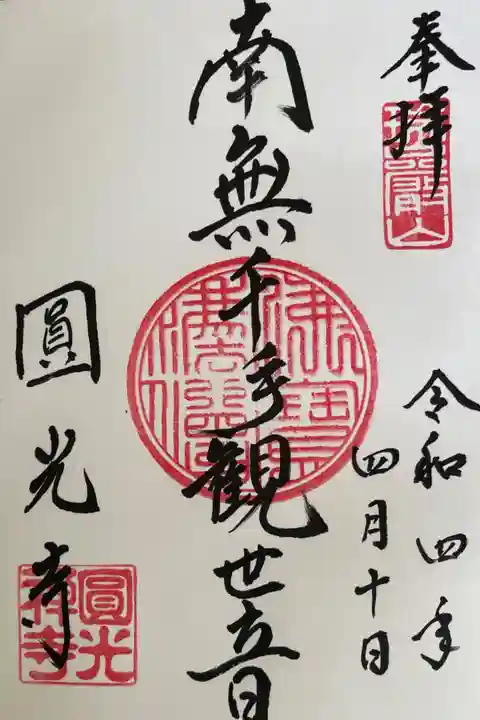 奉拝
令和四年
四月十日
南無千手観世音
圓光寺
圓光禅寺